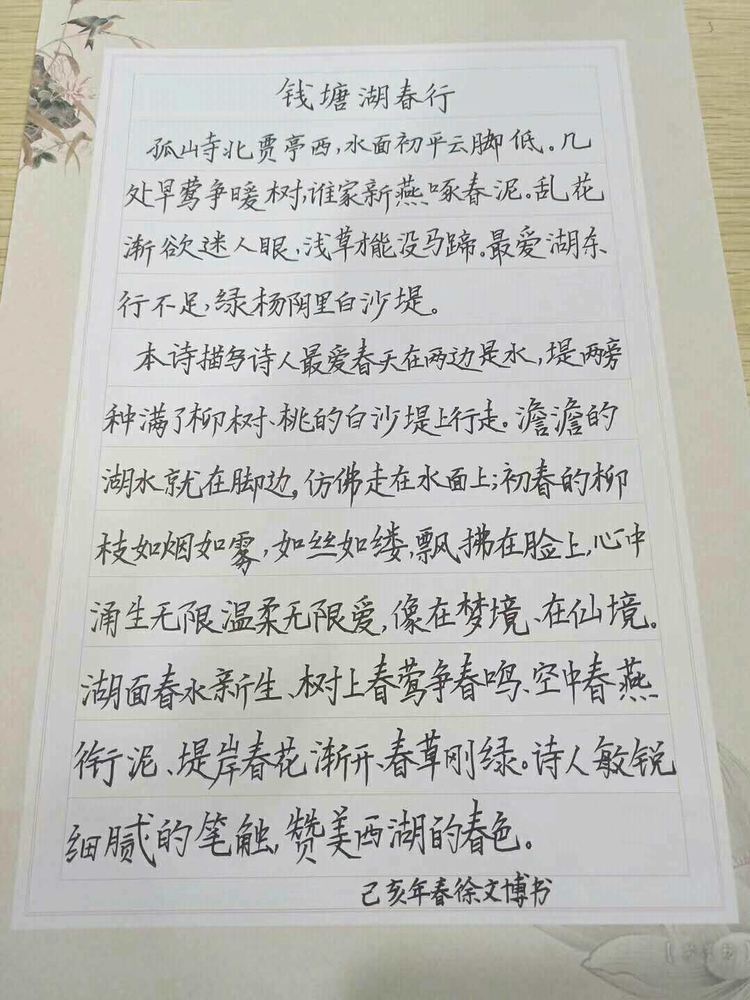 钱塘湖春行
孤山寺北贾亭西,水面初平云脚低。几
处早莺争暖树,谁家新燕啄春泥。乱花
渐欲迷人眼,浅草才能没马蹄。最爱湖东
行不足,绿杨阴里白沙堤。
本诗描写诗人最爱春天在两边是水,堤两旁
种满了柳树、桃的白沙堤上行走。澹澹的
湖水就在脚边,仿佛走在水面上;初春的柳
枝如烟如雾,如丝如缕,飘拂在脸上,心中
涌生无限温柔无限爱,像在梦境、在仙境。
湖面春水新生、树上春莺争春鸣、空中春燕
衔泥、堤岸春花渐开、春草刚绿。诗人敏锐
细腻的笔触,赞美西湖的春色。
己亥年春徐文博书